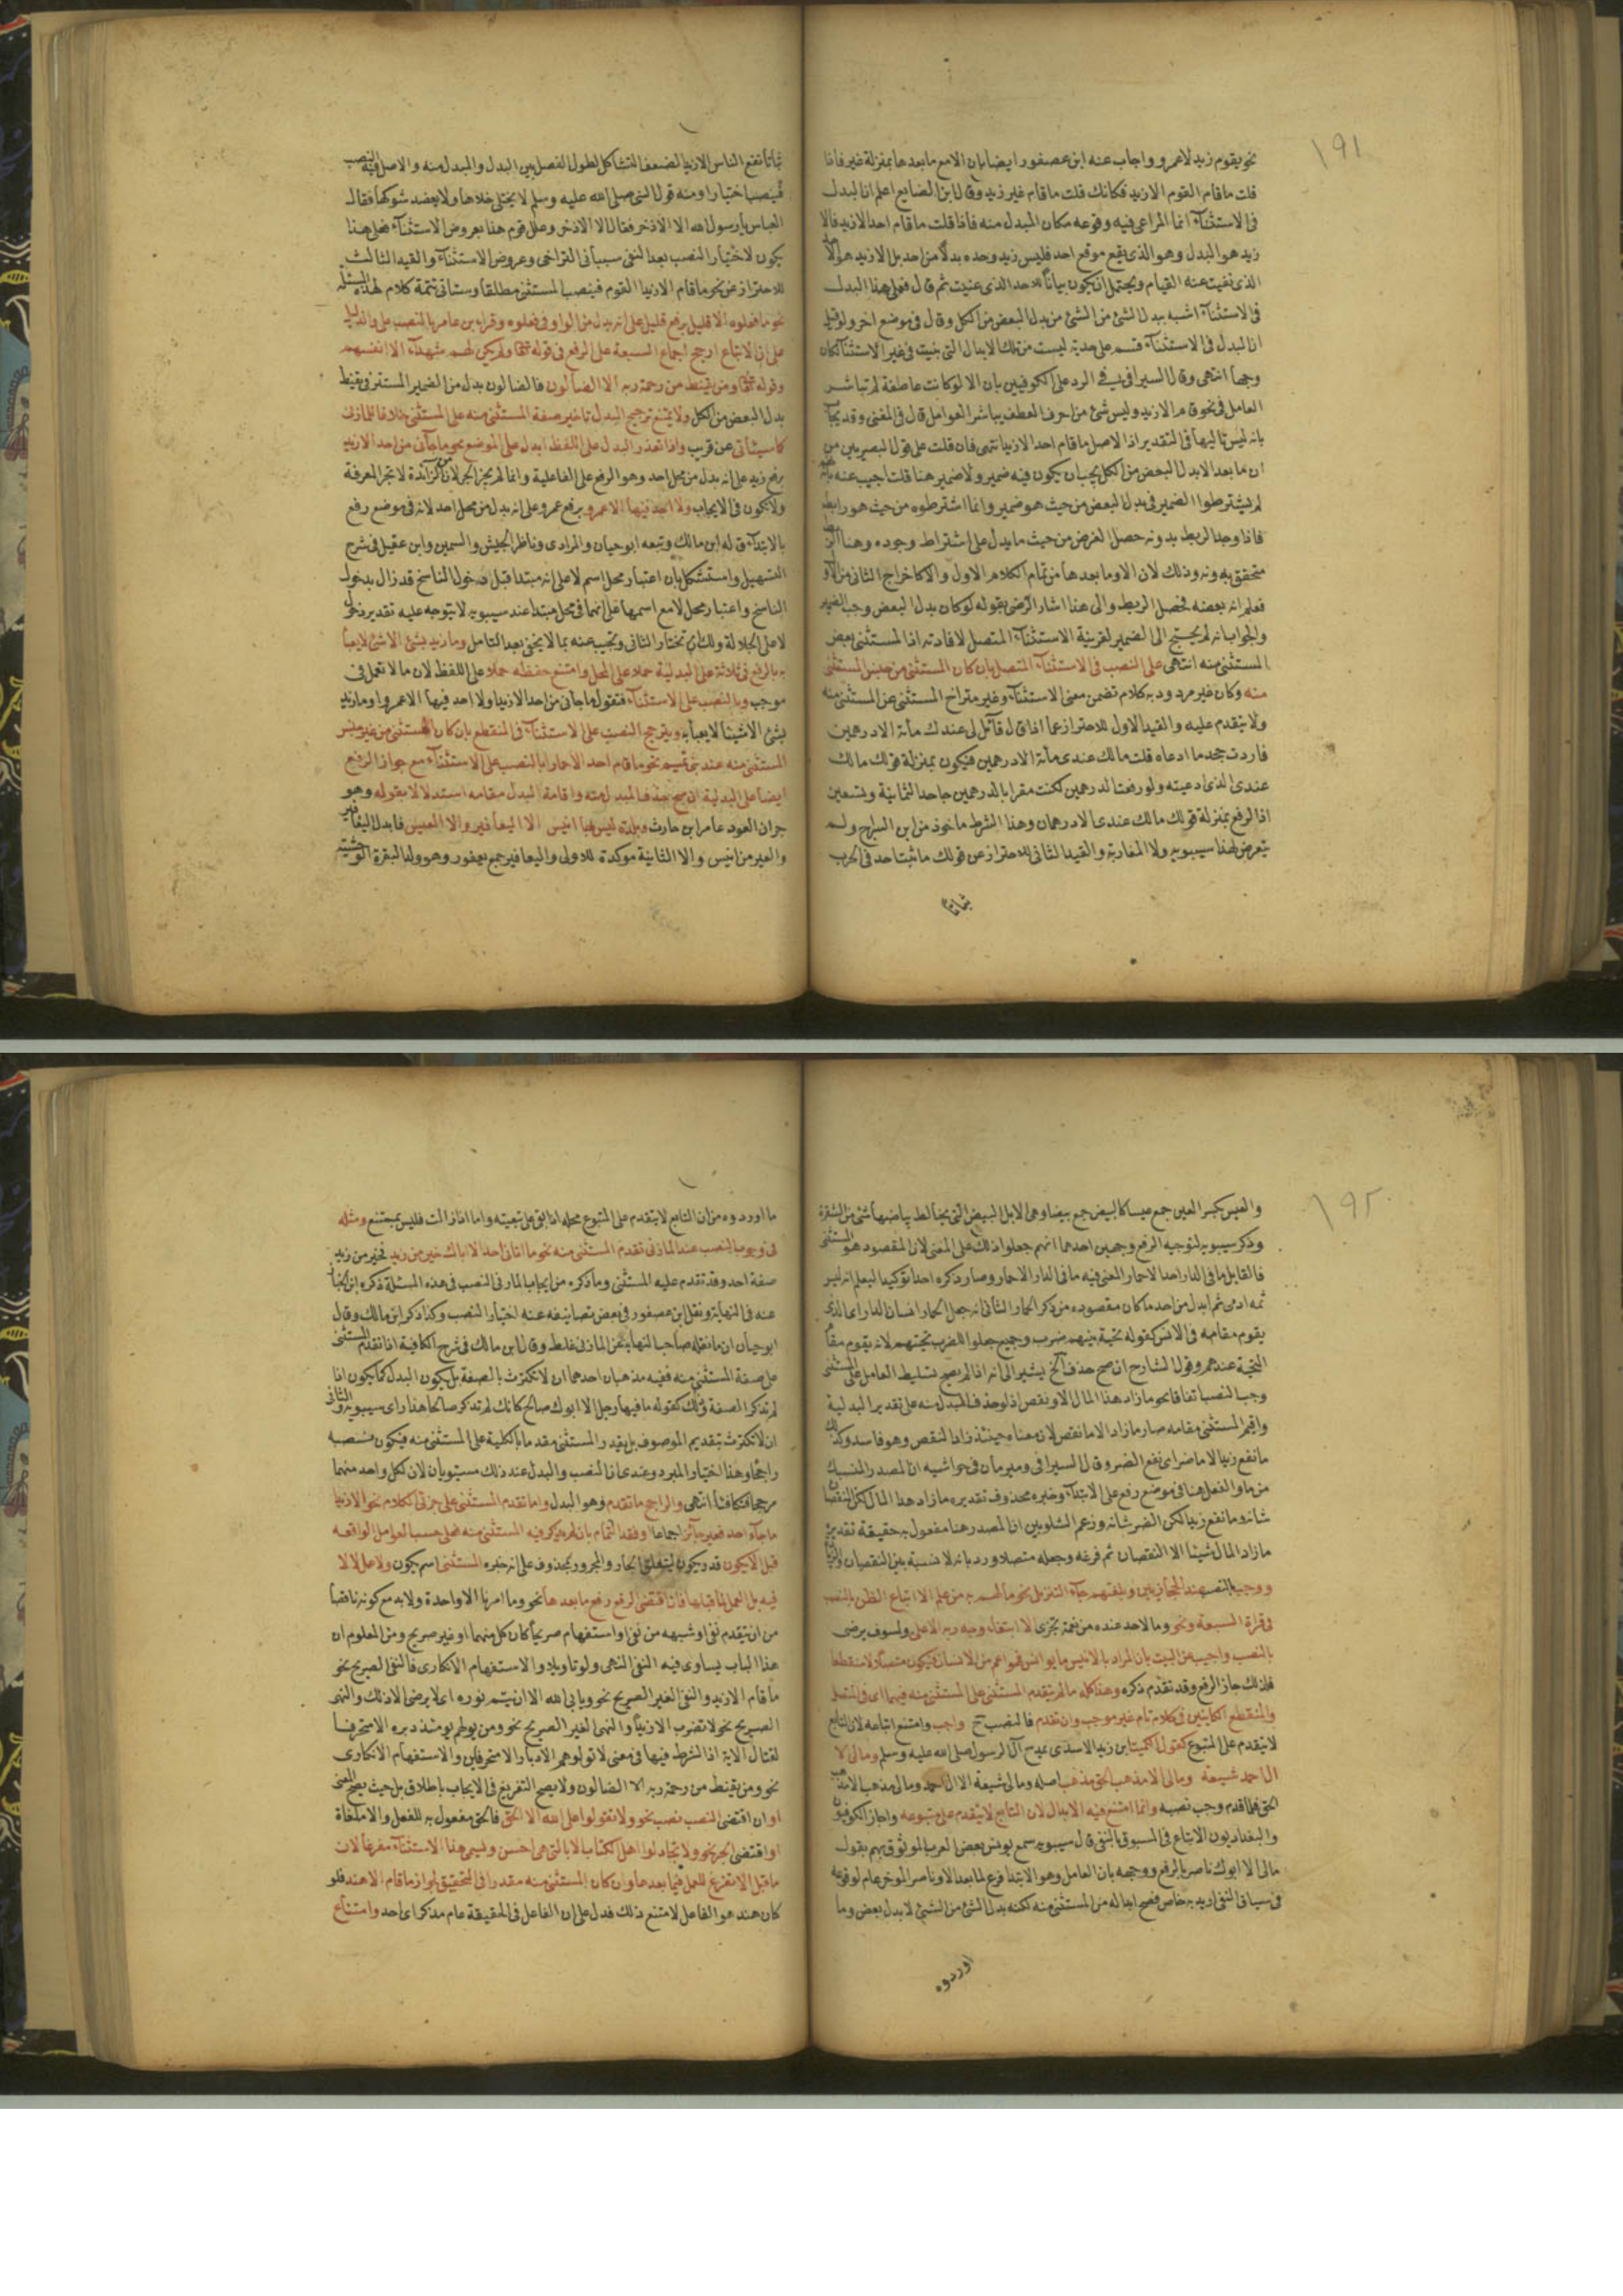 ١٩١
نحو يقوم زيد لا عمرو واجاب عنه ابن عصفور ايضا بان الا مع ما بعدها بمنزلة غير فاذا
قلت ما قام القوم الا زيد فكانك قلت ما قام غير زيد وقال ابن الضايع اعلم ان البدل
فى الاستثناء انما المراعى فيه وقوعه مكان المبدل منه فاذا قلت ما قام احد الا زيد فالا
زيد هو البدل وهو الذى يقع موقع احد فليس زيد وحده بدلا من احد بل الا زيد هو
الذى نفيت عنه القيام ويحتمل ان يكون بيانا للاحد الذى عنيت ثم قال فعلى هذا البدل
فى الاستثناء اشبه ببدل الشئ من الشئ من بدل البعض من الكل وقال فى موضع اخر ولو قيل
ان البدل فى الاستثناء قسم على حدته ليست من تلك الابدال التى بنيت فى غير الاستثناء لكان
وجها انتهى وقال السيرافى فى الرد على الكوفيين بان الا لو كانت عاطفة لم تباشر
العامل فى نحو قام الا زيد وليس شئ من احرف العطف يباشر العوامل قال فى المغنى وقد يجاب
بانه ليس تاليها فى التقدير اذ الاصل ما قام احد الا زيد انتهى فان قلت على قول البصريين من
ان ما بعد الا بدل البعض من الكل يجب ان يكون فيه ضمير ولا ضمير هنا قلت اجيب عنه بانهم
لم يشترطوا الضمير فى بدل البعض من حيث هو ضمير وانما اشترطوه من حيث هو رابط
فاذا وجد الربط بدونه حصل الغرض من حيث ما يدل على اشتراط وجوده وهنا
متحقق بدونه وذلك لان الا وما بعدها من تمام الكلام الاول والا لاخراج الثانى من الاول
فعلم انه بعضه فحصل الربط والى هذا اشار الرضى بقوله لو كان بدل البعض وجب الضمير
والجواب انه لم يحتج الى الضمير لقرينة الاستثناء المتصل لافادته ان المستثنى بعض
المستثنى منه انتهى على النصب فى الاستثناء المتصل بان كان المستثنى من جنس المستثنى
منه وكان غير مردود به كلام تضمن معنى الاستثناء وغير متراخ المستثنى عن المستثنى منه
ولا يتقدم عليه والقيد الاول للاحتراز عما اذا قال قائل لى عندك مائة الا درهمين
فاردت جحد ما ادعاه قلت ما لك عندى مائة الا درهمين فيكون بمنزلة قولك ما لك
عندى الذى ادعيته ولو رفعت الدرهمين لكنت مقرا بالدرهمين جاحدا لثمانية وتسعين
اذ الرفع بمنزلة قولك ما لك عندى الا درهمان وهذا الشرط ماخوذ من ابن السراج ولم
يتعرض لهذا سيبويه ولا المغاربة والقيد الثانى للاحتراز عن قولك ما ثبت احد فى الحرب
ثباتا
ثباتا نفع الناس الا زيدا لضعف التشاكل لطول الفصل بين البدل والمبدل منه والاصل فيه النصب
فينصب اختيارا ومنه قول النبى صلى الله عليه وسلم لا يختلى خلاها ولا يعضد شوكها فقال
العباس يا رسول الله الا الاذخر فقال الا الاذخر وعلل قوم هذا بعروض الاستثناء فعلى هذا
يكون لاختيار النصب بعد النفى سببان التراخى وعروض الاستثناء والقيد الثالث
للاحتراز عن نحو ما قام الا زيدا القوم فينصب المستثنى مطلقا وستاتى تتمة كلام لهذه المسئلة
نحو ما فعلوه الا قليل برفع قليل على انه بدل من الواو فى فعلوه وقراءه ابن عامر بالنصب على والدليل
على ان الاتباع ارجح اجماع السبعة على الرفع فى قوله تعالى ولم يكن لهم شهداء الا انفسهم
وقوله تعالى ومن يقنط من رحمة ربه الا الضالون فالضالون بدل من الضمير المستتر فى يقنط
بدل البعض من الكل ولا يمنع ترجيح البدل تاخير صفة المستثنى منه على المستثنى خلافا للمازنى
كما سيأتى عن قريب واذا تعذر البدل على اللفظ ابدل على الموضع نحو ما جاءنى من احد الا زيد
برفع زيد على انه بدل من محل احد وهو الرفع على الفاعلية وانما لم يجز الجر لان من الزائدة لا تجر المعرفة
ولا تكون فى الايجاب ولا احد فيها الا عمرو برفع عمرو على انه بدل من محل احد لانه فى موضع رفع
بالابتداء قاله ابن مالك وتبعه ابو حيان والمرادى وناظر الجيش والسمين وابن عقيل فى شرح
التسهيل واستشكل بان اعتبار محل اسم لا على انه مبتدا قبل دخول الناسخ قد زال بدخول
الناسخ واعتبار محل لا مع اسمها على انهما فى محل مبتدا عند سيبويه لا يتوجه عليه تقدير دخول
لا على الجلالة ولك ان تختار الثانى وتجيب عنه بما لا يخفى بعد التامل وما زيد بشئ الا شئ لا يعبا
به بالرفع فى ثلاثة على البدلية حملا على المحل وامتنع حفظه حملا على اللفظ لان ما لا تعمل فى
موجب وبالنصب على الاستثناء فتقول ما جاءنى من احد الا زيدا ولا احد فيها الا عمروا وما زيد
بشئ الا شيئا لا يعبأ به ويترجح النصب على الاستثناء فى المنقطع بان كان المستثنى من غير جنس
المستثنى منه عند بنى تميم نحو ما قام احد الا حمارا بالنصب على الاستثناء مع جواز الرفع
ايضا على البدلية ان صح حذف المبدل منه واقامة البدل مقامه استدلالا بقوله وهو
جران العود عامر ابن حارث وبلدة ليس بها انيس الا اليعافير والا العيس فابدل اليعافير
والعيس من انيس والا الثانية موكدة للاولى واليعافير جمع يعفور وهو ولد البقرة الوحشية
١٩٢
والعيس بكسر العين جمع عيسا كالبيض جمع بيضا وهى الابل البيض التى يخالط بياضها شئ من الشقرة
وذكر سيبويه لتوجيه الرفع وجهين احدهما انهم جعلوا ذلك على المعنى لان المقصود هو المستثنى
فالقايل ما فى الدار احد الا حمار المعنى فيه ما فى الدار الا حمار وصار ذكره احدا توكيدا ليعلم انه ليس
ثمه ادمى ثم ابدل من احد ما كان مقصوده من ذكر الحمار الثانى انه جعل الحمار انسان الدار اى الذى
يقوم مقامه فى الانس كقوله تحية بينهم ضرب وجميع جعلوا الضرب تحيتهم لانه يقوم مقام
التحية عندهم وقول الشارح ان صح حذف الخ يشير الى انه اذا لم يصح تسليط العامل على المستثنى
وجب النصب اتفاقا نحو ما زاد هذا المال الا ما نقص اذ لو حذف المبدل منه على تقدير البدلية
واقيم المستثنى مقامه صار ما زاد الا ما نقص لان معناه حينئذ زاد النقص وهو فاسد وكذلك
ما نفع زيد الا ما ضر اى نفع الضر وقال السيرافى ومبرمان فى حواشيه ان المصدر المنسبك
من ما والفعل هنا فى موضع رفع على الابتداء وخبره محذوف تقديره ما زاد هذا المال لكن النقصان
شانه وما نفع زيد لكن الضر شانه وزعم الشلوبين ان المصدر هنا مفعول به حقيقة تقديره
ما زاد المال شيئا الا النقصان ثم فرغه وجعله متصلا ورد بانه لا نسبة بين النقصان والزيادة
ووجب النصب عند الحجازيين وبلغتهم جاء التنزيل نحو ما لهم به من علم الا اتباع الظن بالنصب
فى قراة السبعة ونحو وما لاحد عنده من نعمة تجزى الا ابتغاء وجه ربه الاعلى ولسوف يرضى
بالنصب واجيب عن البيت بان المراد بالانيس ما يوانس فهو اعم من الانسان فيكون متصلا لا منقطعا
فلذلك جاز الرفع وقد تقدم ذكره وهذا كله ما لم يتقدم المستثنى على المستثنى منه فيهما اى فى المتصل
والمنقطع الكائنين فى كلام تام غير موجب وان تقدم فالنصب ح واجب وامتنع اتباعه لان التابع
لا يتقدم على المتبوع كقول الكميت ابن زيد الاسدى يمدح آل الرسول صلى الله عليه وسلم وما لى الا
آل احمد شيعة وما لى الا مذهب الحق مذهب اصله وما لى شيعة الا آل احمد وما لى مذهب الا مذهب
الحق فلما قدم وجب نصبه وانما امتنع فيه الابدال لان التابع لا يتقدم على متبوعه واجاز الكوفيون
والبغداديون الاتباع فى المسبوق بالنفى قال سيبويه سمع يونس بعض العرب الموثوق بهم يقول
مالى الا ابوك ناصر بالرفع ووجهه بان العامل وهو الابتدا فرغ لما بعد الا وناصر الموخر عام لوقوعه
فى سياق النفى اريد به خاص فصح ابداله من المستثنى منه لكنه بدل الشئ من الشئ لا بدل بعض وما
اوردوه
ما اوردوه من ان التابع لا يتقدم على المتبوع محله اذا بقى على تبعيته واما اذا زالت فليس بممتنع ومثله
فى وجوب النصب عند المازنى تقدم المستثنى منه نحو ما اتانى احد الا اباك خير من زيد فخير من زيد
صفة احد وقد تقدم عليه المستثنى وما ذكره من ايجاب المازنى النصب فى هذه المسئلة ذكره ابن الخباز
عنه فى النهاية ونقل ابن عصفور فى بعض تصانيفه عنه اختيار النصب وكذا ذكر ابن مالك وقال
ابو حيان ان ما نقله صاحب النهاية عن المازنى غلط وقال ابن مالك فى شرح الكافية اذا تقدم المستثنى
على صفة المستثنى منه ففيه مذهبان احدهما ان لا تكترث بالصفة بل يكون البدل كما يكون اذا
لم تذكر الصفة وذلك كقوله ما فيها رجل الا ابوك صالح كانك لم تذكر صالحا هذا راى سيبويه والثانى
ان لا تكترث بتقديم الموصوف بل يقدر المستثنى مقدما بالكلية على المستثنى منه فيكون نصبه
راجحا وهذا اختيار المبرد وعندى ان النصب والبدل عند ذلك مستويان لان لكل واحد منهما
مرجحا فتكافئا انتهى والراجح ما تقدم وهو البدل واما تقدم المستثنى على جزئى الكلام نحو الا زيدا
ما جاء احد فغير جائز اجماعا وفقد التمام بان لم يذكر فيه المستثنى منه فعلى حسب العوامل الواقعه
قبل الا يكون قد ويكون ليتعلق الجار والمجرور بمحذوف على انه خبره المستثنى اسم يكون ولا عمل الا
فيه بل العمل لما قبلها فاذا اقتضى الرفع رفع ما بعدها نحو وما امرنا الا واحدة ولا بد مع كونه ناقصا
من ان يتقدم نفى او شبهه من نفى او استفهام صريحا كان كل منهما او غير صريح ومن المعلوم ان
هذا الباب يساوى فيه النفى النهى ولو تاويلا والاستفهام الانكارى فالنفى الصريح نحو
ما قام الا زيد والنفى الغير الصريح نحو ويابى الله الا ان يتم نوره اى لا يرضى الا ذلك والنهى
الصريح نحو لا تضرب الا زيدا والنهى الغير الصريح نحو ومن يولهم يومئذ دبره الا متحرفا
لقتال الاية اذ الشرط فيها فى معنى لا تولوهم الادبار الا متحرفين والاستفهام الانكارى
نحو ومن يقنط من رحمة ربه الا الضالون ولا يصح التفريغ فى الايجاب باطلاق بل حيث يصح المعنى
او ان اقتضى النصب نصب نحو ولا تقولوا على الله الا الحق فالحق مفعول به للفعل والا ملغاة
او اقتضى الجر نحو ولا تجادلوا اهل الكتاب الا بالتى هى احسن ويسمى هذا الاستثناء مفرغا لان
ما قبل الا تفرغ للعمل فيما بعدها وان كان المستثنى منه مقدرا فى التحقيق لجواز ما قام الا هند فلو
كان هند هو الفاعل لامتنع ذلك فدل على ان الفاعل فى الحقيقة عام مذكر اى احد وامتناع